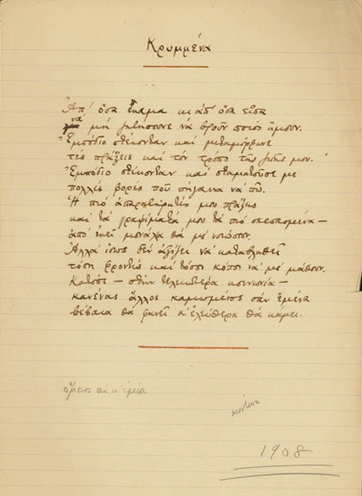 Κρυμμένα
Ἀπ' ὅσα ἔκαμα κι ἀπ' ὅσα εἶπα
νὰ μὴ ζητήσουνε νὰ βροῦν ποιὸς ἤμουν.
Ἐμπόδιο στέκονταν καὶ μεταμόρφωνε
τὲς πράξεις καὶ τὸν τρόπο τῆς ζωῆς μου.
Ἐμπόδιο στέκονταν καὶ σταματοῦσε με
πολλὲς φορὲς ποῦ πήγαινα νὰ πῶ.
Ἡ πιὸ ἀπαρατήρητές μου πράξεις
καὶ τὰ γραψίματά μου τὰ πιὸ σκεπασμένα —
ἀπὸ ἐκεῖ μονάχα θὰ μὲ νοιώσουν.
Ἀλλὰ ἴσως δὲν ἀξίζει νὰ καταβληθεῖ
τόση φροντὶς καὶ τόσοι κόποι νὰ μὲ μάθουν.
Κατόπι — στὴν τελειοτέρα κοινωνία —
κανένας ἄλλος καμωμένος σὰν ἐμένα
βέβαια θὰ φανεῖ κ' ἐλεύθερα θὰ κάμει.
1908